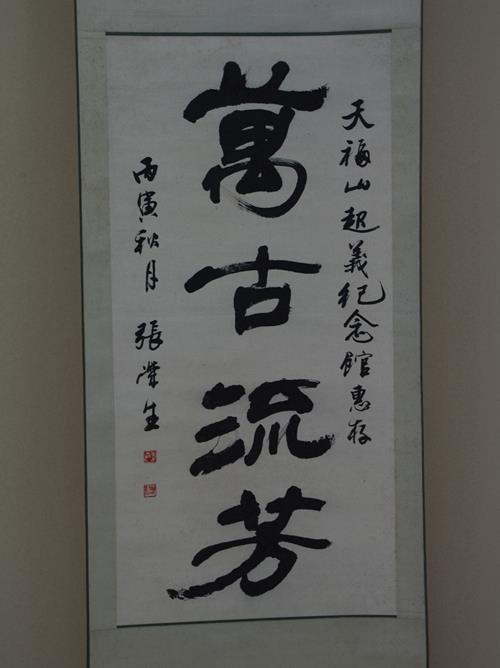 天福山起義纪念館惠存
萬古流芳
丙寅秋月 張榮生